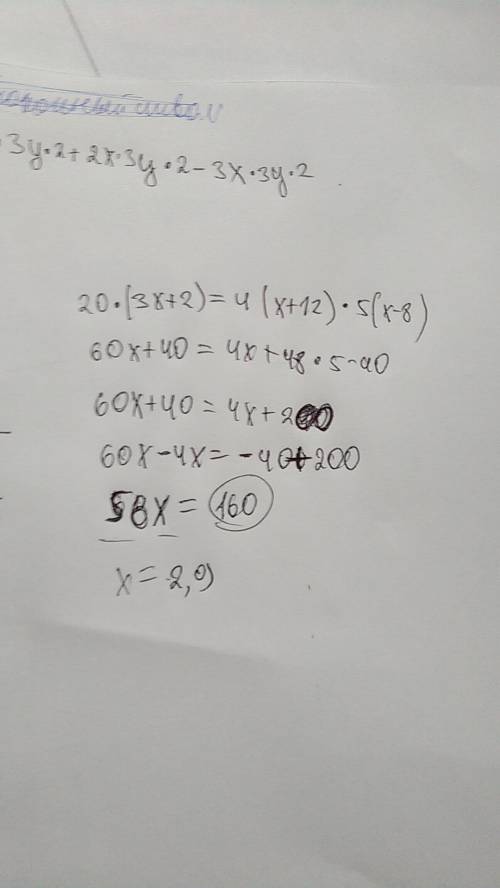 3y·2+2x·3y·2-3x·3y·2
20·(3x+2)=4(x+12)·5(x-8)
60x+40=4x+48·5-40
60x+40=4x+200
60x-4x=-40+200
56x=160
x=2,9